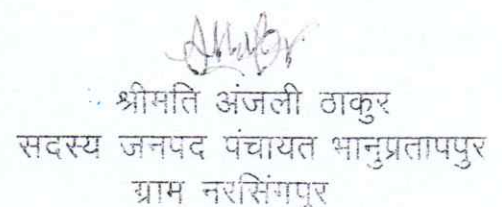 श्रीमति अंजली ठाकुर
सदस्य जनपद पंचायत भानुप्रतापपुर
ग्राम नरसिंगपुर